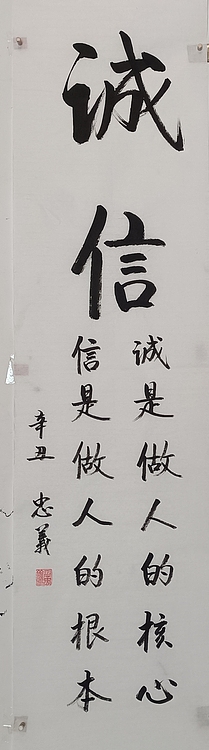 诚信
诚是做人的核心
信是做人的根本
辛丑 忠義